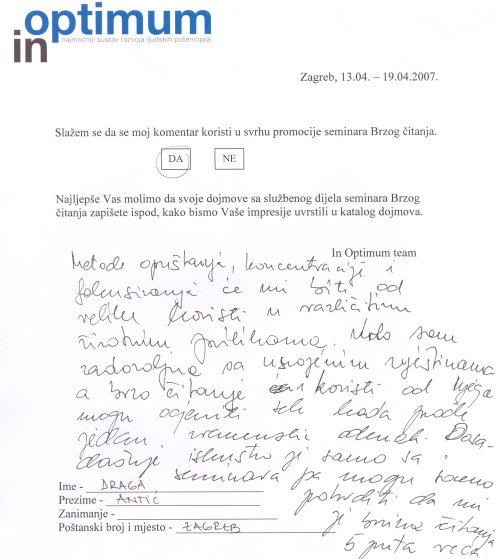 in optimum
najmoćniji sustav razvoja ljudskih potencijala
Zagreb, 13.04. – 19.04.2007.
Slažem se da se moj komentar koristi u svrhu promocije seminara Brzog čitanja.
DA NE
Najljepše Vas molimo da svoje dojmove sa službenog dijela seminara Brzog
čitanja zapišete ispod, kako bismo Vaše impresije uvrstili u katalog dojmova.
In Optimum team
Metode opuštanja, koncentracije i
fokusiranja će mi biti od
velike koristi u različitim
životnim prilikama. Vrlo sam
zadovoljna sa usvojenim vještinama
a brzo čitanje i koristi od njega
mogu ocjeniti tek kada prođe
jedan vremenski odmak. Dosa-
dašnje iskustvo je samo sa
seminara pa mogu samo
potvrditi da mi
je brzina čitanja
5 puta veća
Ime - DRAGA
Prezime - ANTIĆ
Zanimanje -
Poštanski broj i mjesto - ZAGREB